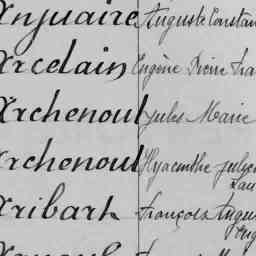 Anjuaire Auguste Constan
Arcelain Eugène Désiré Fra
Archenoul Jules Marie
Archenoul Hyacinthe Julien
Lau
Aribart François Augus
Eug